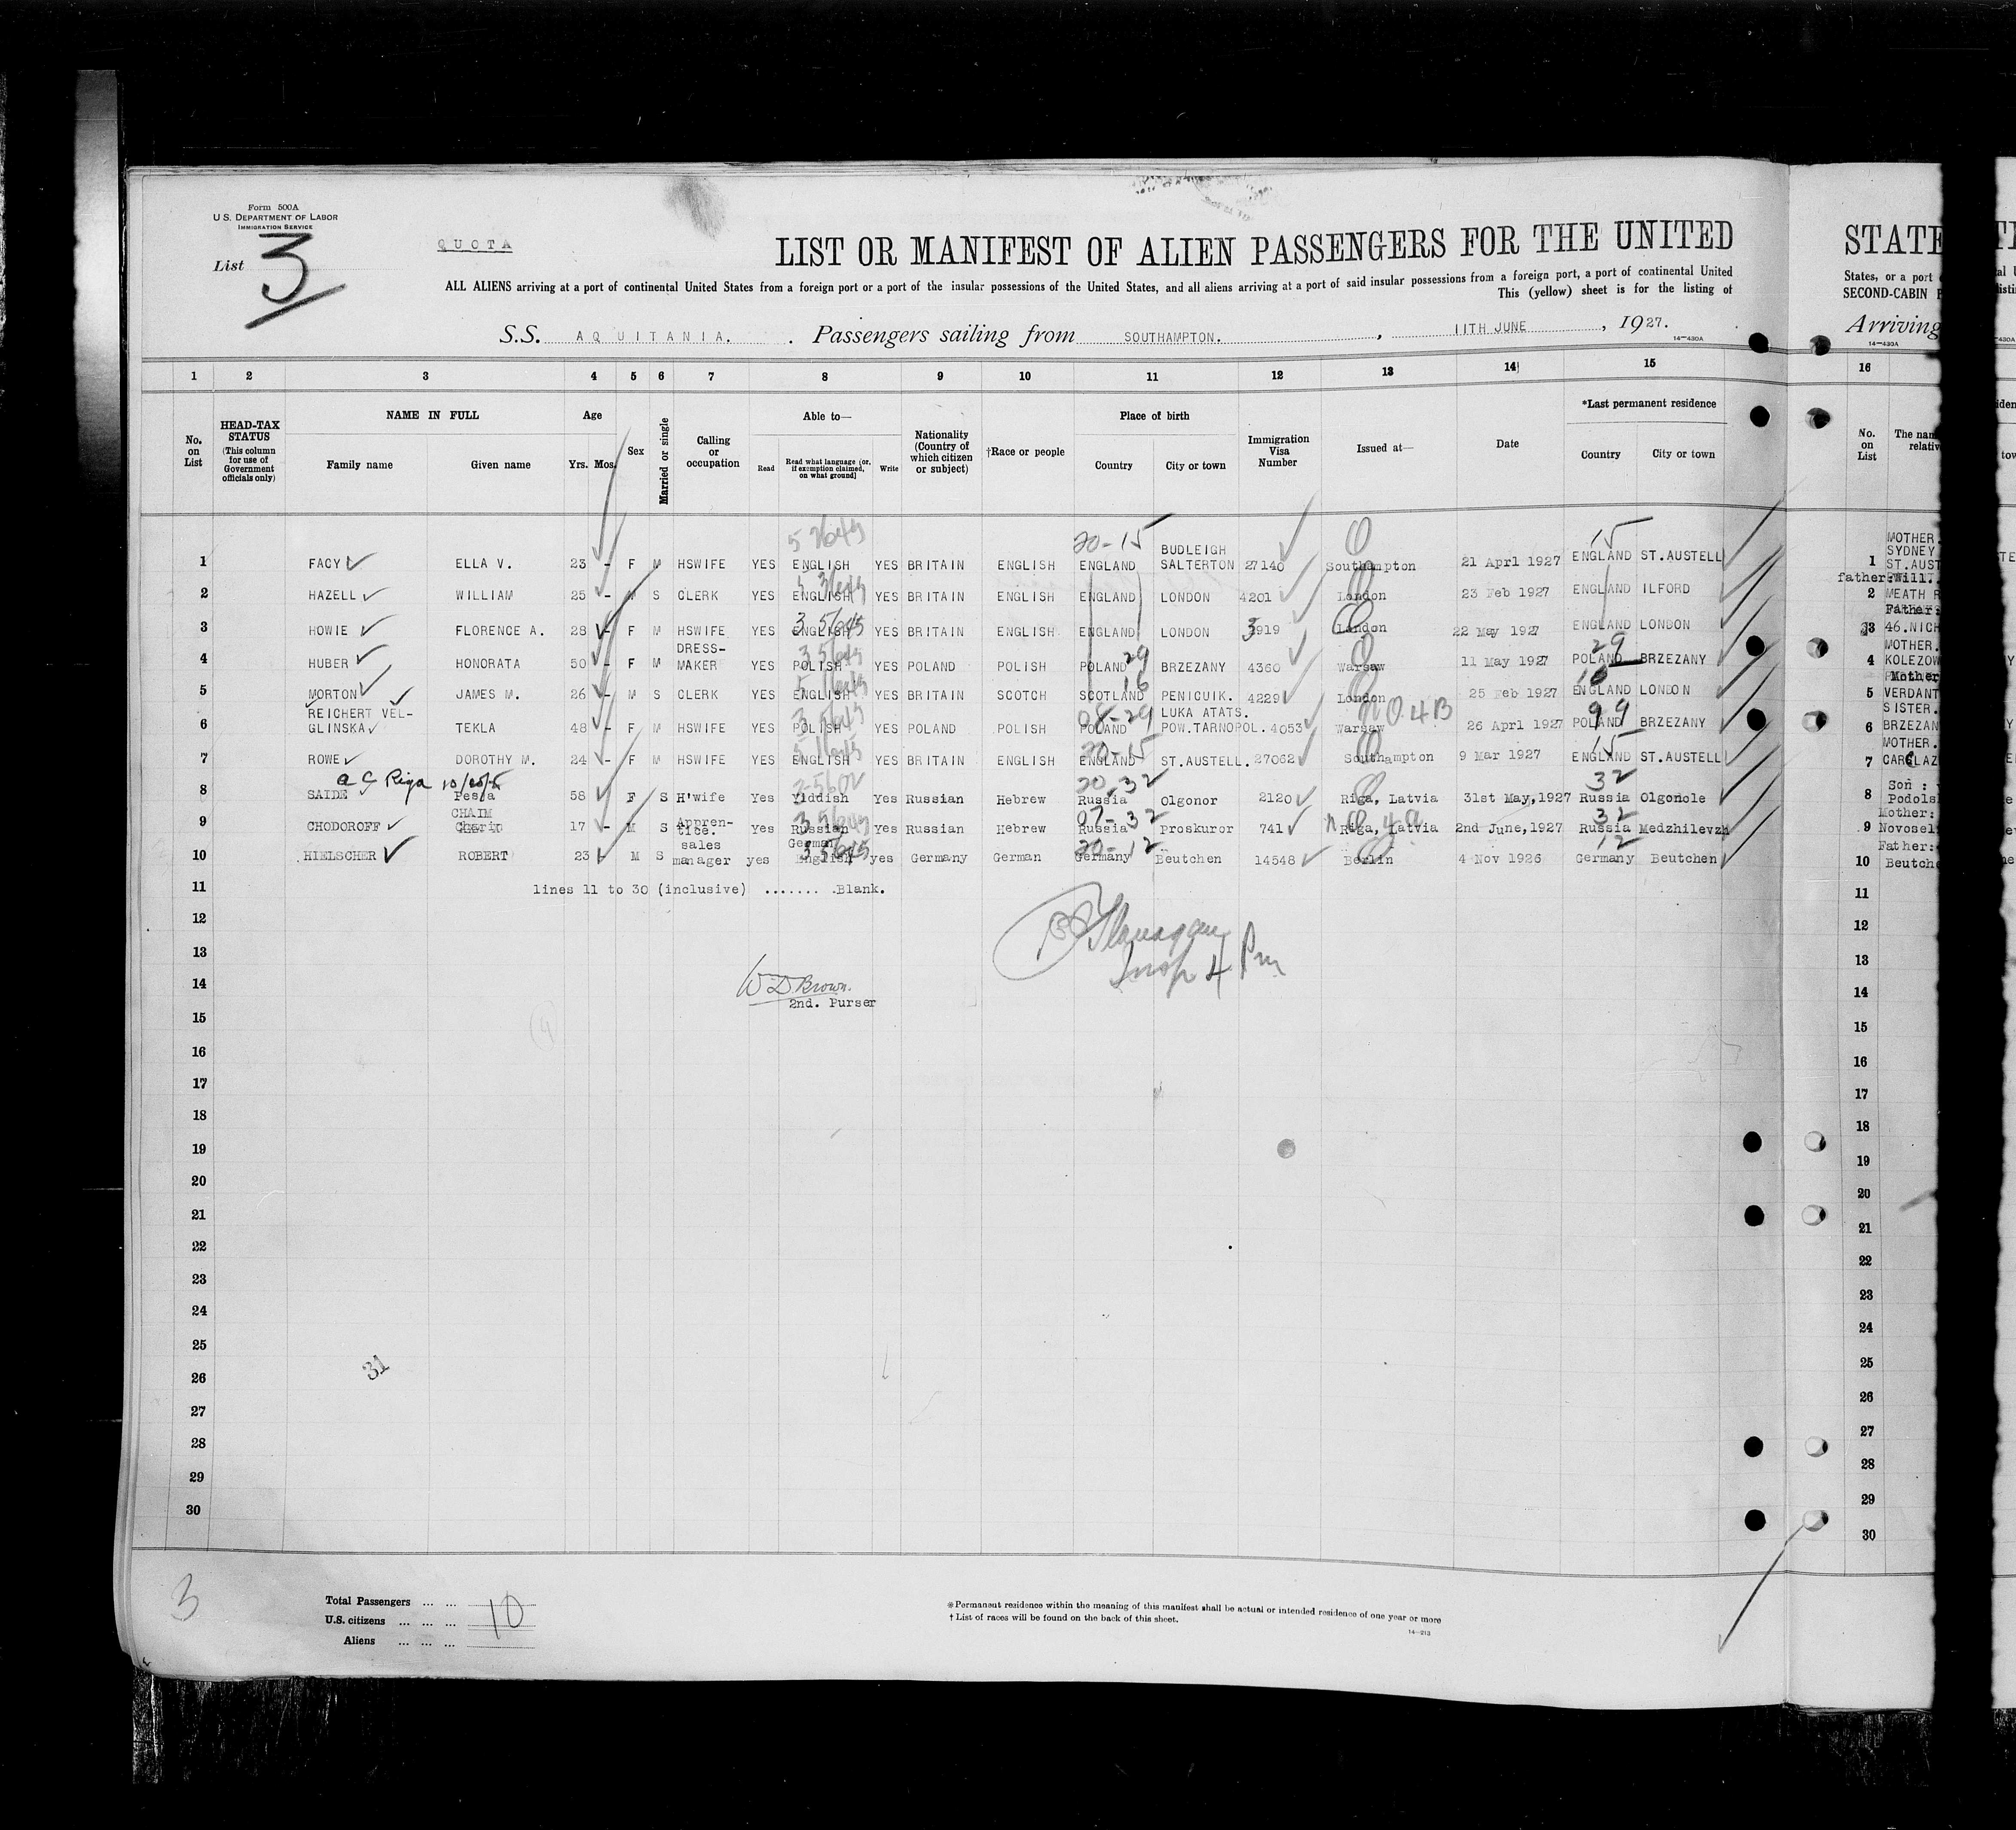 Form 500A
U.S. DEPARTMENT OF LABOR
IMMIGRATION SERVICE
List 3
QUOTA
LIST OR MANIFEST OF ALIEN PASSENGERS FOR THE UNITED
ALL ALIENS arriving at a port of continental United States from a foreign port or a port of the insular possessions of the United States, and all aliens arriving at a port of said insular possessions from a foreign port, a port of continental United
This (yellow) sheet is for the listing of
S.S. AQUITANIA. Passengers sailing from SOUTHAMPTON. , 11TH JUNE , 1927.
14-430A
1 2 3 4 5 6 7 8 9 10 11 12 13 14 15
No. on List
HEAD-TAX STATUS (This column for use of Government officials only)
NAME IN FULL
Family name Given name
Age
Yrs. Mos.
Sex
Married or single
Calling or occupation
Able to—
Read Read what language (or, if exemption claimed, on what ground) Write
Nationality (Country of which citizen or subject)
†Race or people
Place of birth
Country City or town
Immigration Visa Number
Issued at—
Date
*Last permanent residence
Country City or town
1 FACY ELLA V. 23 - F M HSWIFE YES ENGLISH YES BRITAIN ENGLISH 20-15 ENGLAND BUDLEIGH SALTERTON 27140 Southampton 21 Aprl 1927 15 ENGLAND ST.AUSTELL
2 HAZELL WILLIAM 25 - M S CLERK YES ENGLISH YES BRITAIN ENGLISH ENGLAND LONDON 4201 London 23 Feb 1927 ENGLAND ILFORD
3 HOWIE FLORENCE A. 28 - F M HSWIFE YES ENGLISH YES BRITAIN ENGLISH ENGLAND LONDON 3919 London 22 May 1927 ENGLAND LONDON
4 HUBER HONORATA 50 - F M DRESS-MAKER YES POLISH YES POLAND POLISH POLAND 29 BRZEZANY 4360 Warsaw 11 May 1927 29 POLAND BRZEZANY
5 MORTON JAMES M. 26 - M S CLERK YES ENGLISH YES BRITAIN SCOTCH SCOTLAND 16 PENICUIK. 4229 London 25 Feb 1927 ENGLAND LONDON
6 REICHERT VEL-GLINSKA TEKLA 48 - F M HSWIFE YES POLISH YES POLAND POLISH 08-29 POLAND LUKA ATATS. POW.TARNOPOL. 4053 Warsaw 26 Aprl 1927 POLAND BRZEZANY
7 ROWE DOROTHY M. 24 - F M HSWIFE YES ENGLISH YES BRITAIN ENGLISH 20-15 ENGLAND ST.AUSTELL. 27062 Southampton 9 Mar 1927 15 ENGLAND ST.AUSTELL
8 SAIDE Pesia 58 F S H'wife Yes Yiddish Yes Russian Hebrew 20.32 Russia Olgonor 2120 Riga, Latvia 31st May,1927 32 Russia Olgonole
9 CHODOROFF CHAIM 17 - M S Apprentice. Yes Russian Yes Russian Hebrew 07-32 Russia Proskuror 741 Riga, Latvia 2nd June,1927 32 Russia Medzhilevzh
10 HIELSCHER ROBERT 23 M S sales manager yes German English yes Germany German 20-12 Germany Beutchen 14548 Berlin 4 Nov 1926 12 Germany Beutchen
11 lines 11 to 30 (inclusive) ........ Blank.
12
13
14
W D Brown.
2nd. Purser
Flanagan
Insp
15
16
17
18
19
20
21
22
23
24
25
26
31
27
28
29
30
3
Total Passengers ... ...
U.S. citizens ... ... ... 10
Aliens ... ... ...
*Permanent residence within the meaning of this manifest shall be actual or intended residence of one year or more
†List of races will be found on the back of this sheet.
14-213
STATE
States, or a port
SECOND-CABIN
Arriving
14-430A
16
No. on List
The nam
relativ
1 MOTHER. SYDNEY ST.AUST
father:Will.
2 MEATH R
Father:
3 46.NICH
MOTHER.
4 KOLEZOW
Mother
5 VERDANT
SISTER.
6 BRZEZAN
MOTHER.
7 CARCLAZ
Son :
8 Podols
Mother:
9 Novosel
Father:
10 Beutche
11
12
13
14
15
16
17
18
19
20
21
22
23
24
25
26
27
28
29
30